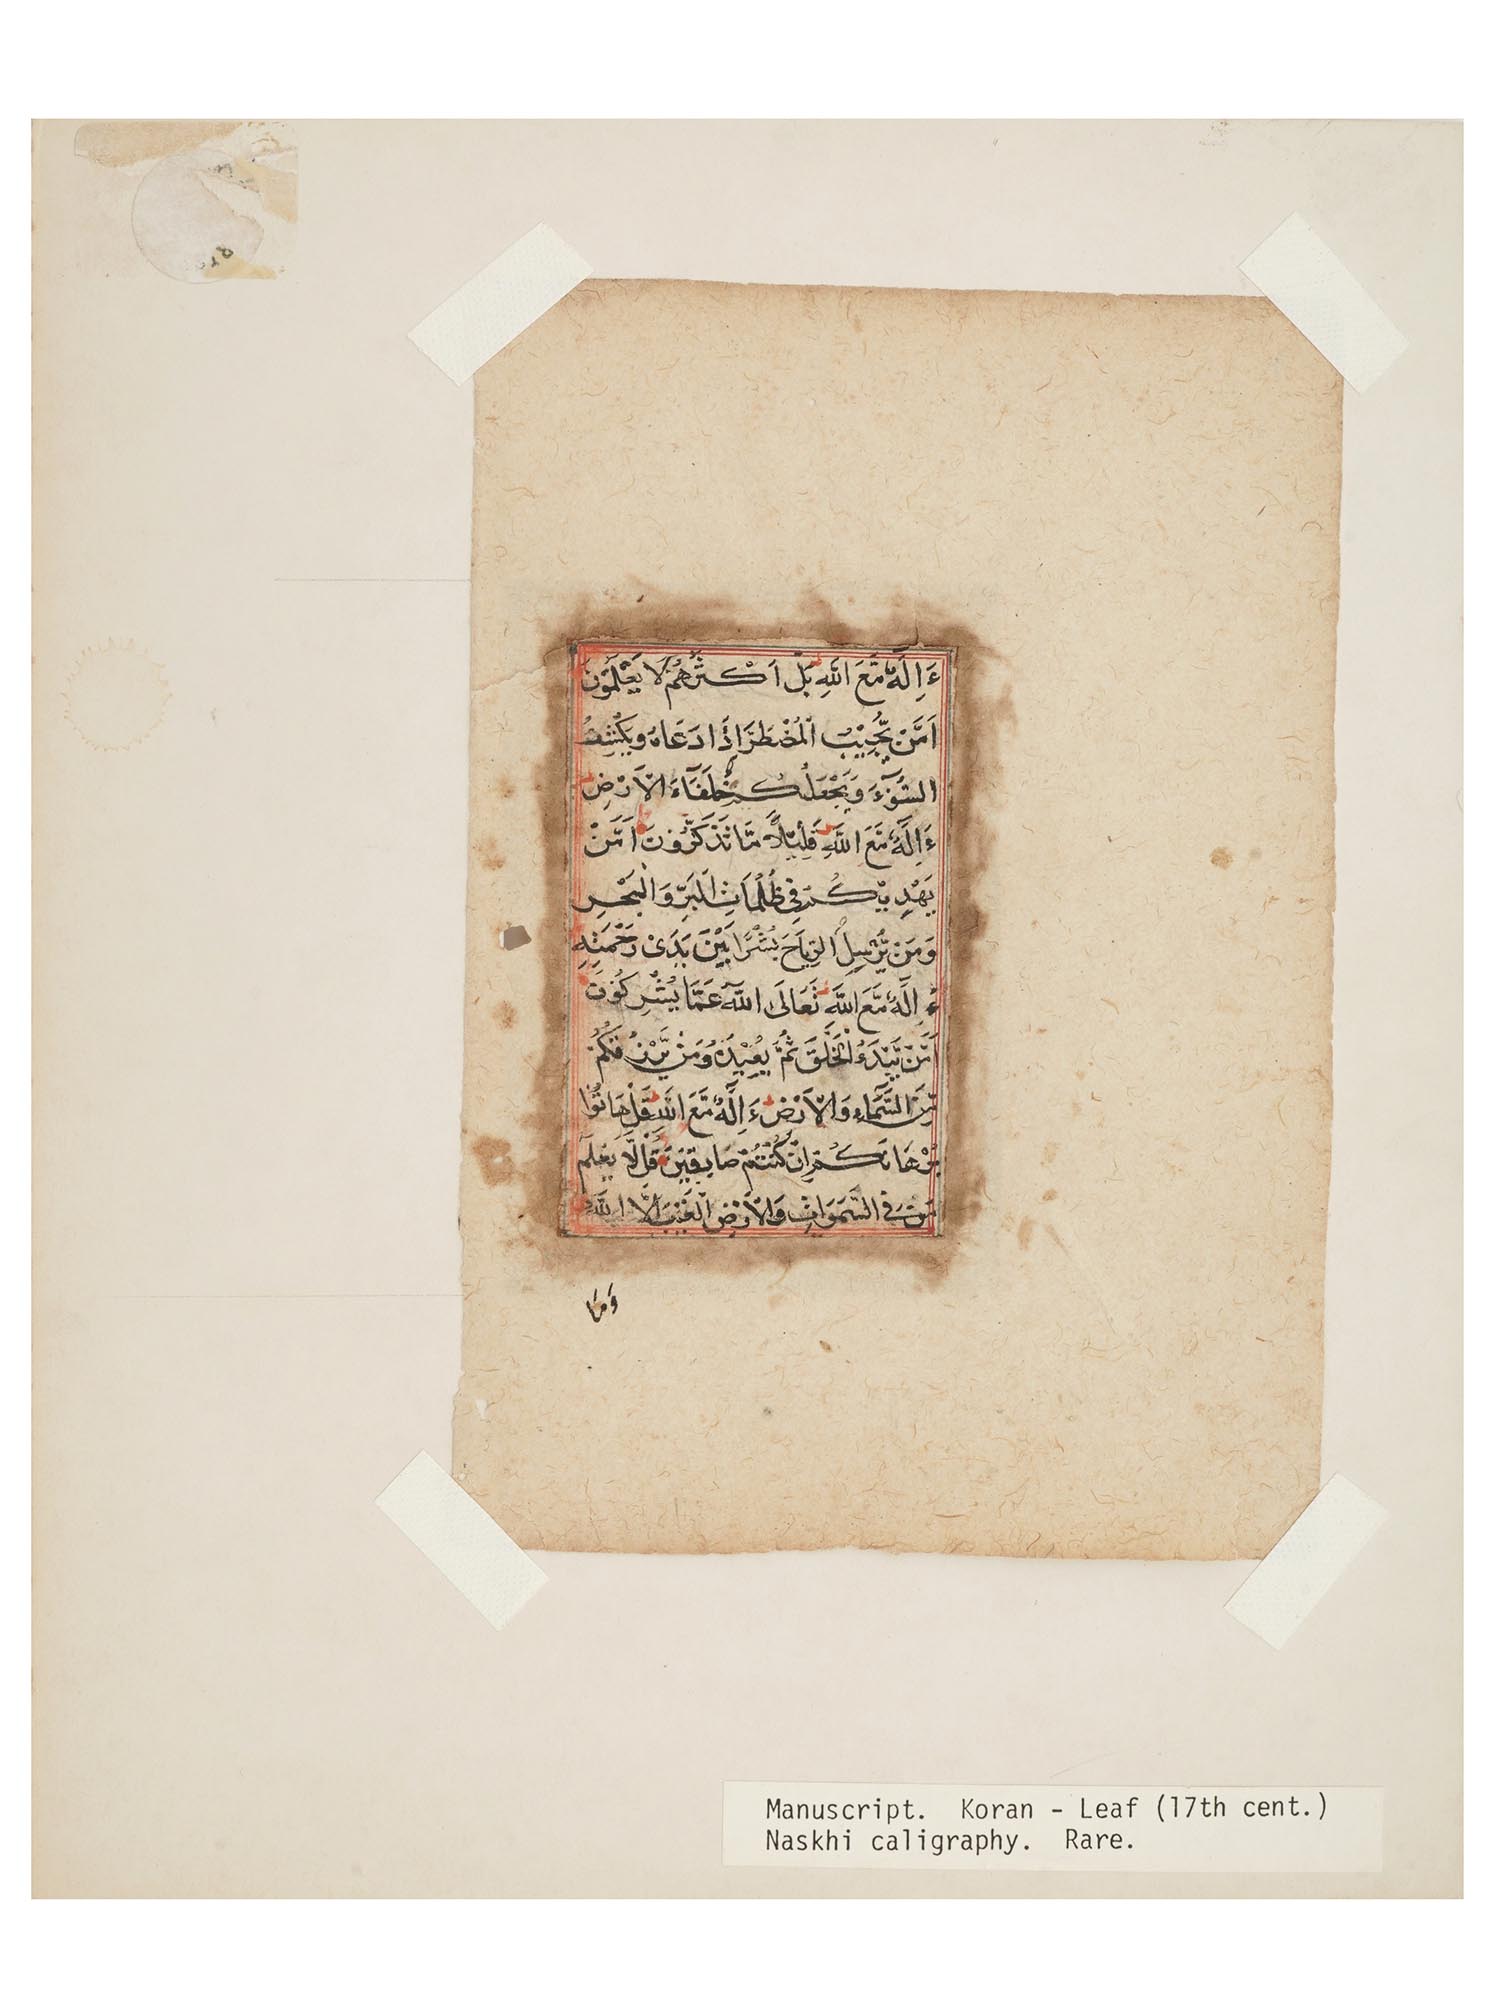 ءَاِلَهٌ مَّعَ اللَّهِ بَلْ اَكْثَرُهُمْ لَا يَعْلَمُونَ
اَمَّنْ يُّجِيْبُ الْمُضْطَرَّ اِذَا دَعَاهُ وَيَكْشِفُ
السُّوْٓءَ وَيَجْعَلُكُمْ خُلَفَآءَ الْاَرْضِ
ءَاِلَهٌ مَّعَ اللَّهِ قَلِيْلًا مَّا تَذَكَّرُونَ اَمَّنْ
يَهْدِيْكُمْ فِي ظُلُمَاتِ الْبَرِّ وَالْبَحْرِ
وَمَنْ يُّرْسِلُ الرِّيَاحَ بُشْرًا بَيْنَ يَدَىْ رَحْمَتِهِ
ءَاِلَهٌ مَّعَ اللَّهِ تَعَالَى اللَّهُ عَمَّا يُشْرِكُونَ
اَمَّنْ يَّبْدَءُ الْخَلْقَ ثُمَّ يُعِيْدُهُ وَمَنْ يَّرْزُقُكُمْ
مِّنَ السَّمَآءِ وَالْاَرْضِ ءَاِلَهٌ مَّعَ اللَّهِ قُلْ هَاتُوْا
بُرْهَانَكُمْ اِنْ كُنْتُمْ صَادِقِيْنَ قُلْ لَّا يَعْلَمُ
مَنْ فِي السَّمَوَاتِ وَالْاَرْضِ الْغَيْبَ اِلَّا اللَّهُ
وَمَا
Manuscript. Koran - Leaf (17th cent.)
Naskhi caligraphy. Rare.